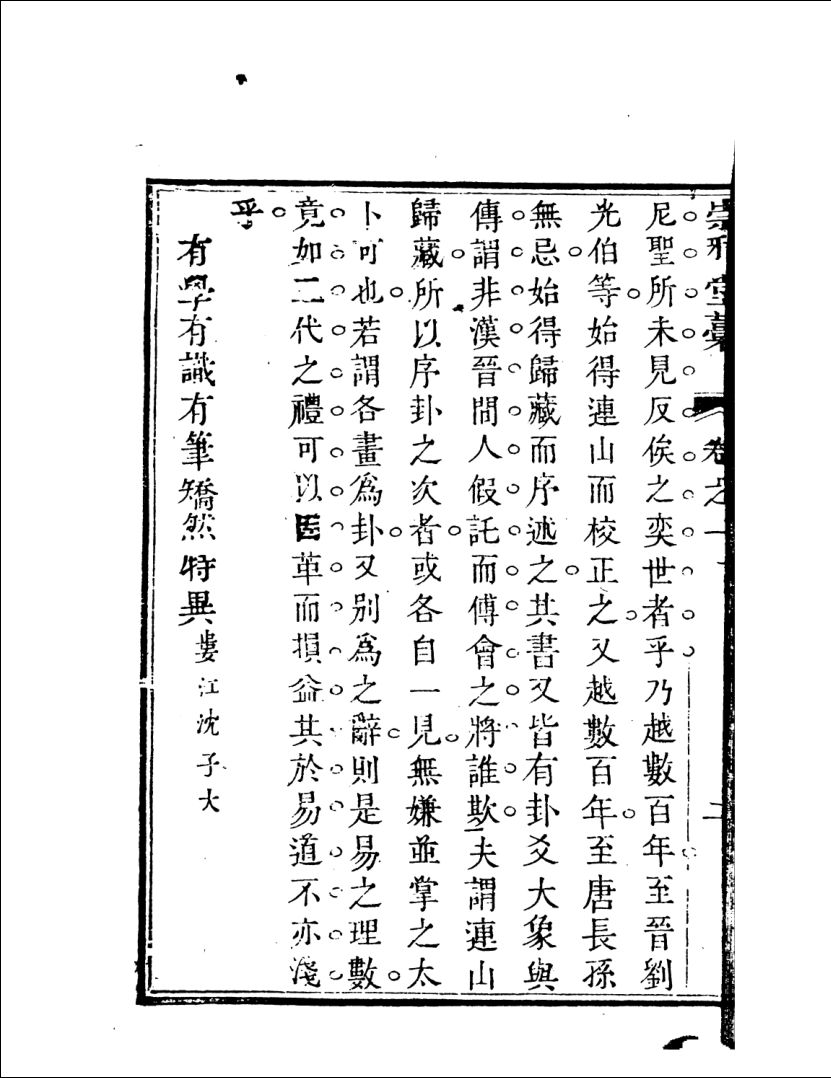 崇雅堂藁 卷之一 二
尼聖所未見反俟之奕世者乎乃越數百年至晉劉
光伯等始得連山而校正之又越數百年至唐長孫
無忌始得歸藏而序述之其書又皆有卦爻大象與
傳謂非漢晉間人假託而傅會之將誰欺夫謂連山
歸藏所以序卦之次者或各自一見無嫌並掌之太
卜可也若謂各畫爲卦又別爲之辭則是易之理數
竟如二代之禮可以因革而損益其於易道不亦淺
乎
有學有識有筆矯然特異婁江沈子大